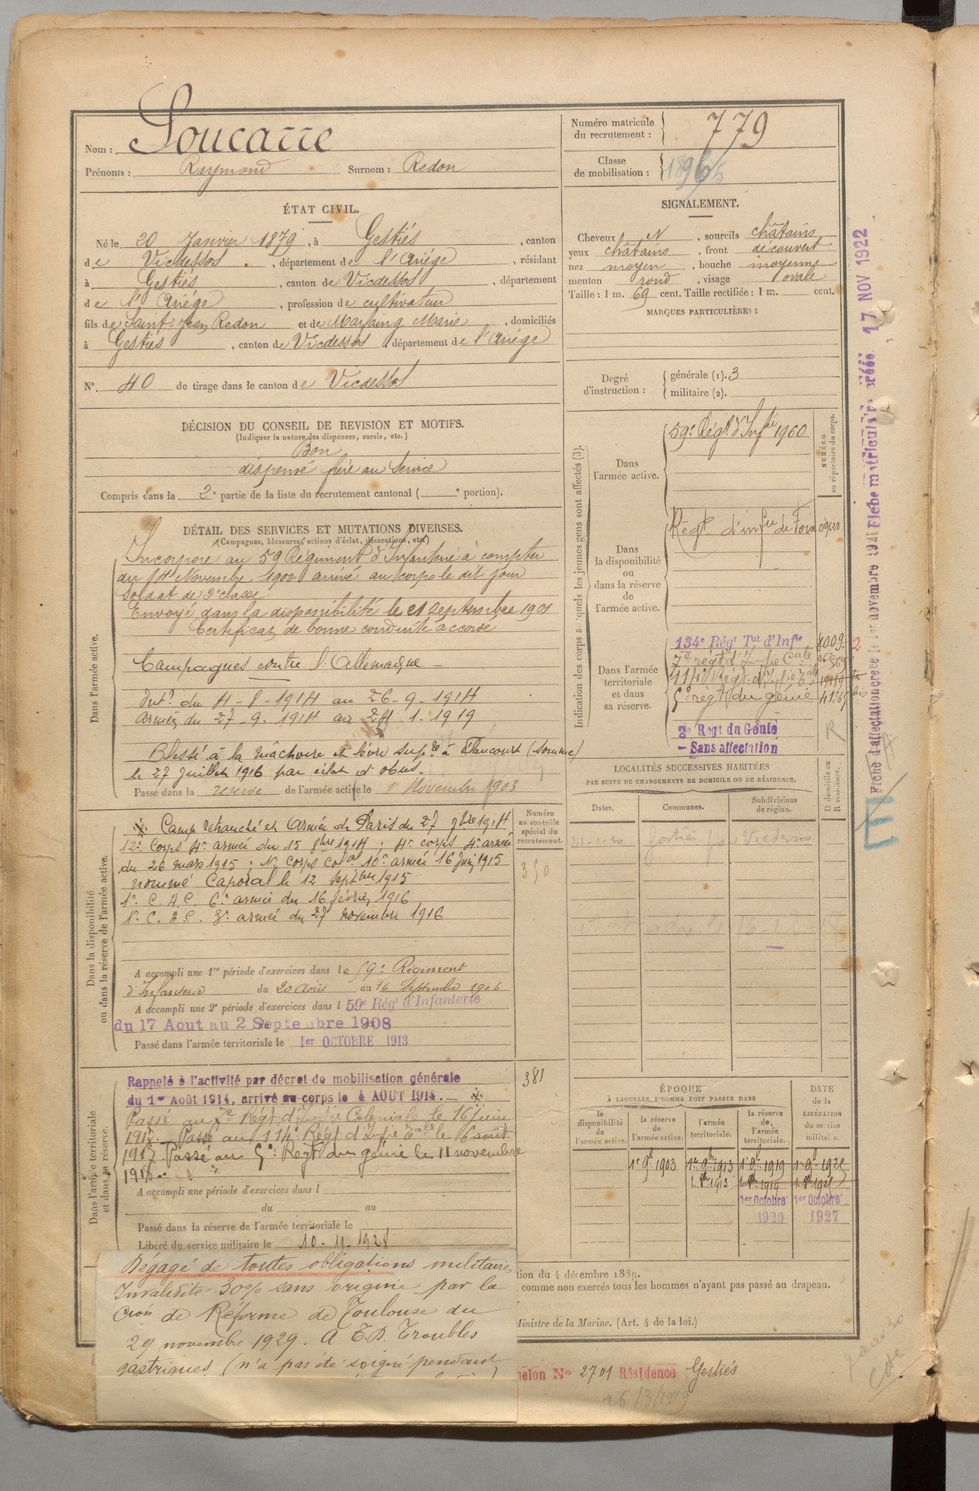 Nom : Soucarre
Prénoms : Raymond Surnom : Redon
ÉTAT CIVIL.
Né le 20 Janvier 1879, à Gestiès, canton
de Vicdessos, département de l'Ariège, résidant
à Gestiès, canton de Vicdessos, département
de l'Ariège, profession de cultivateur
fils de Saint Jean Redon et de Marie, domiciliés
à Gestiès, canton de Vicdessos département de l'Ariège
N°. 40 de tirage dans le canton de Vicdessos
DÉCISION DU CONSEIL DE REVISION ET MOTIFS.
(Indiquer la nature des dispenses, sursis, etc.)
Bon
dispensé frère au service
Compris dans la 2e partie de la liste du recrutement cantonal ( e portion).
DÉTAIL DES SERVICES ET MUTATIONS DIVERSES.
(Campagnes, blessures, actions d'éclat, décorations, etc.)
Dans l'armée active.
Incorporé au 59 Régiment d'Infanterie à compter
du 14 Novembre 1900 arrivé au corps le dit jour
Soldat de 2e classe.
Envoyé dans la disponibilité le 21 septembre 1901
Certificat de bonne conduite accordé
Campagnes contre l'Allemagne
Intr du 4-8-1914 au 26-9-1914
Armée du 27-9-1914 au 24-1-1919
Blessé à la mâchoire et lèvre supre à Flaucourt (Somme)
le 27 juillet 1916 par éclat d'obus.
Passé dans la réserve de l'armée active le 1er Novembre 1903
Dans la disponibilité
ou dans la réserve de l'armée active.
Camp retranché et Armée de Paris du 27 7bre 1914
12e Corps 4e armée du 15 8bre 1914 ; 4e corps 4e armée
du 26 mars 1915 ; 1er corps Cal 10e armée 16 Juin 1915
nommé Caporal le 12 septbre 1915
1er C. A. C. 6e armée du 16 février 1916
1er C. A. C. 3e armée du 27 novembre 1916
A accompli une 1re période d'exercices dans le 59e Régiment
d'Infanterie du 20 Août au 16 Septembre 1906
A accompli une 2e période d'exercices dans l 59e Régt d'Infanterie
du 17 Aout au 2 Septembre 1908
Passé dans l'armée territoriale le 1er OCTOBRE 1913
Dans l'armée territoriale
et dans sa réserve.
Rappelé à l'activité par décret de mobilisation générale
du 1er Août 1914, arrivé au corps le 4 AOUT 1914.
Passé au 7e Régt d'Inftie Coloniale le 16 juin
1915. Passé au 114e Régt d'Inftie Tle le 6 août
1917 Passé au 5e Regt du génie le 11 novembre
1918
A accompli une période d'exercices dans l
du au
Passé dans la réserve de l'armée territoriale le
Libéré du service militaire le 10-11-1928
Dégagé de toutes obligations militaires
Invalidité 30% sans origine par la
Cion de Réforme de Toulouse du
29 novembre 1929. A T.D. Troubles
gastriques (n'a pas été soigné pendant
Numéro
au contrôle
spécial du
recrutement.
350
381
Numéro matricule
du recrutement : 779
Classe
de mobilisation :
SIGNALEMENT.
Cheveux N, sourcils châtains
yeux châtains, front découvert
nez moyen, bouche moyenne
menton rond, visage ovale
Taille : 1 m. 69 cent. Taille rectifiée : 1 m. cent.
MARQUES PARTICULIÈRES :
Degré
d'instruction :
générale (1). 3
militaire (2).
Indication des corps auxquels les jeunes gens sont affectés (3).
NUMÉRO
au répertoire du corps.
Dans
l'armée active.
59e Régt d'Inftie 1960
Dans
la disponibilité
ou
dans la réserve
de
l'armée active.
Régt d'infie de Foix
Dans l'armée
territoriale
et dans
sa réserve.
134e Régt Tal d'Infie
7e régt d'Infie Cale
114e Régt d'Infie Tle
5e régt du génie
2e Regt du Génie
- Sans affectation
R
LOCALITÉS SUCCESSIVES HABITÉES
PAR SUITE DE CHANGEMENTS DE DOMICILE OU DE RÉSIDENCE.
Dates. Communes. Subdivisions
de région.
D domicile ou
R résidence.
ÉPOQUE
À LAQUELLE L'HOMME DOIT PASSER DANS
la
disponibilité
de
l'armée active.
la réserve
de
l'armée active.
l'armée
territoriale.
la réserve
de
l'armée
territoriale.
DATE
de la
LIBÉRATION
du service
militaire.
1er 9bre 1903 1er 9bre 1913 1er 9bre 1919 1er 9bre 1925
1er Octobre 1er Octobre
1920 1927
tion du 4 décembre 1889.
comme non exercés tous les hommes n'ayant pas passé au drapeau.
Ministre de la Marine. (Art. 4 de la loi.)
elon N° 2701 Résidence Gestiès
26/3/1919
17 NOV 1922